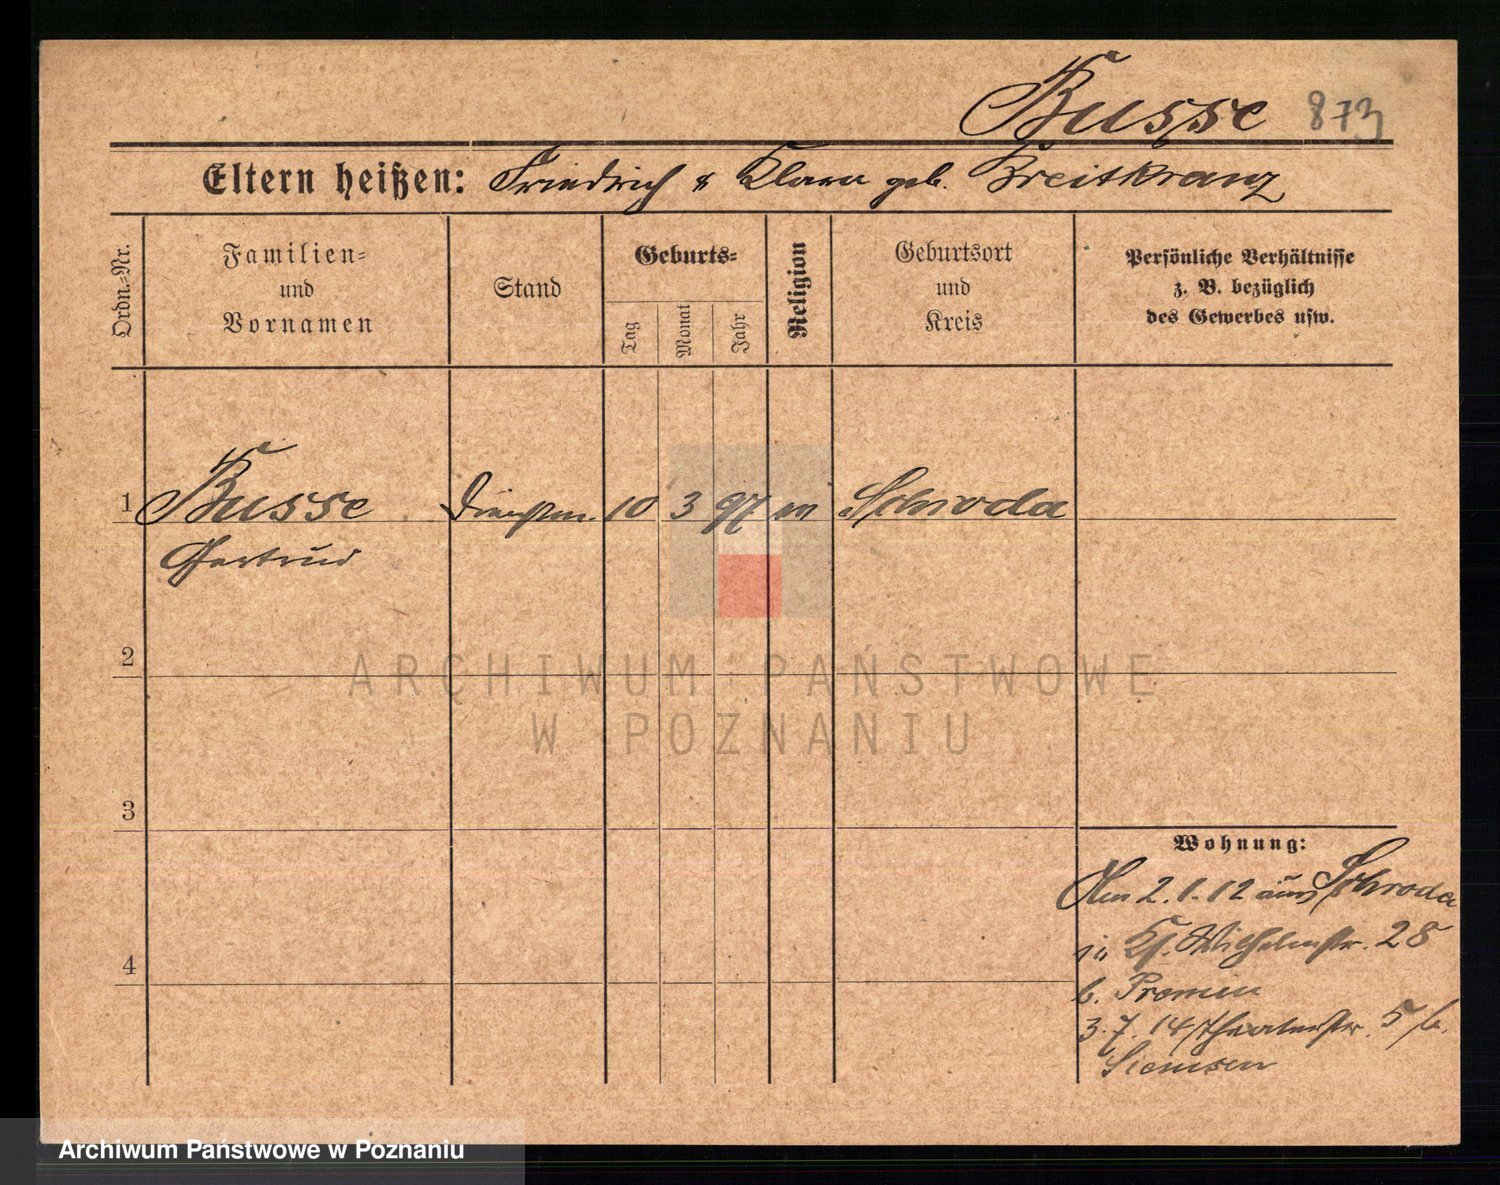 Busse 873
Eltern heißen: Friedrich & Klara geb. Breitkranz
Ordn.-Nr.
Familien-
und
Vornamen
Stand
Geburts-
Tag
Monat
Jahr
Religion
Geburtsort
und
Kreis
Persönliche Verhältnisse
z. B. bezüglich
des Gewerbes usw.
1 Busse Dienstm. 10 3 97 Schroda
Gertrud
2
ARCHIWUM PAŃSTWOWE
W POZNANIU
3
Wohnung:
Am 2.1.12 aus Schroda
4
in Kg. Wilhelmstr. 28
b. Promin
3.7.14 Theaterstr. 5 b.
Siemsen
Archiwum Państwowe w Poznaniu